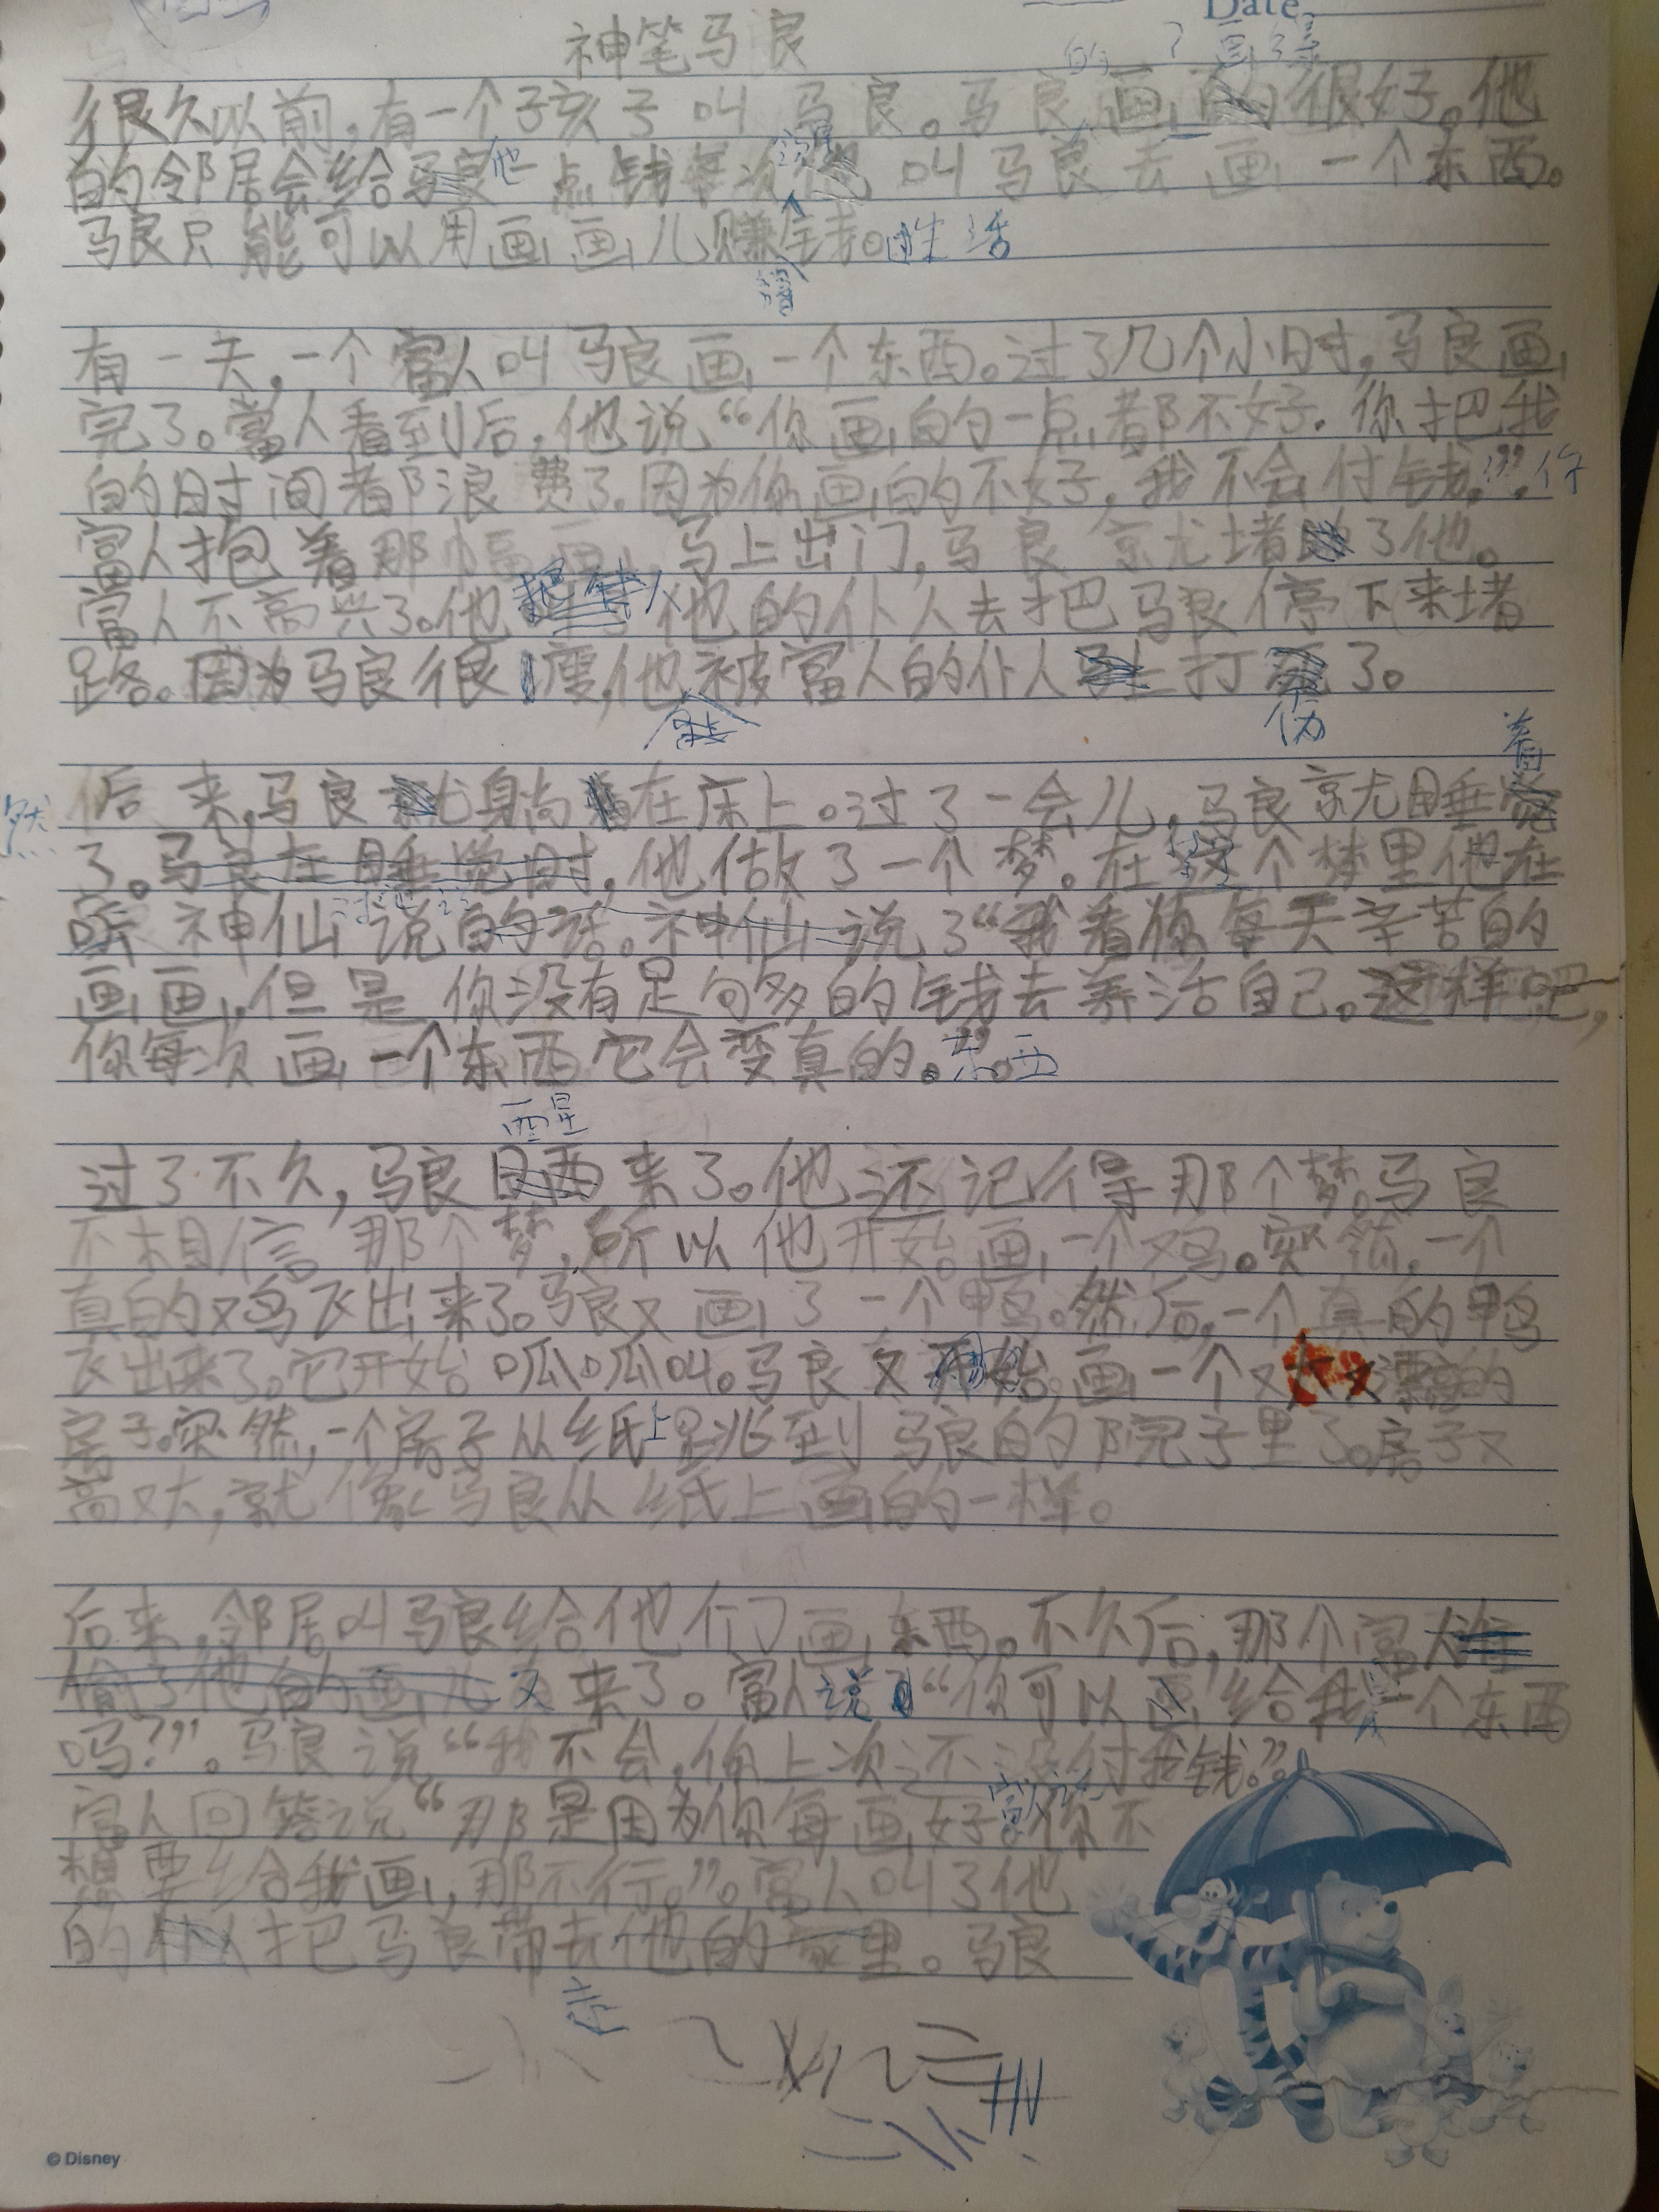 Date
神笔马良
很久以前,有一个孩子叫马良。马良画的很好。他
的邻居会给他一点钱每次 叫马良去画一个东西。
马良只能可以用画画儿赚钱。生活
有一天,一个富人叫马良画一个东西。过了几个小时,马良画
完了。富人看到后,他说“你画的一点都不好.你把我
的时间都浪费了.因为你画的不好,我不会付钱。”
富人抱着那幅画,马上出门,马良就堵了他。
富人不高兴了。他 他的仆人去把马良停下来堵
路。因为马良很瘦,他被富人的仆人打伤了。
后来,马良躺在床上。过了一会儿,马良就睡着
了。他做了一个梦。在这个梦里他在
听神仙说 “我看你每天辛苦的
画画,但是你没有足够多的钱去养活自己。这样吧,
你每次画一个东西它会变真的。”东西
过了不久,马良醒来了。他还记得那个梦。马良
不相信那个梦,所以他开始画一个鸡。突然,一个
真的鸡飞出来了。马良又画了一个鸭。然后,一个真的鸭
飞出来了。它开始呱呱叫。马良又画一个又 漂亮的
房子。突然,一个房子从纸上跳到马良的院子里了。房子又
高又大,就像马良从纸上画的一样。
后来,邻居叫马良给他们画东西。不久后,那个富人
又来了。富人说“你可以给我画一个东西
吗?”。马良说“我不会,你上次还没付我钱。”
富人回答说“那是因为你每画好 你不
想要给我画,那不行。”。富人叫了他
的仆人把马良带去他的家里。马良
© Disney